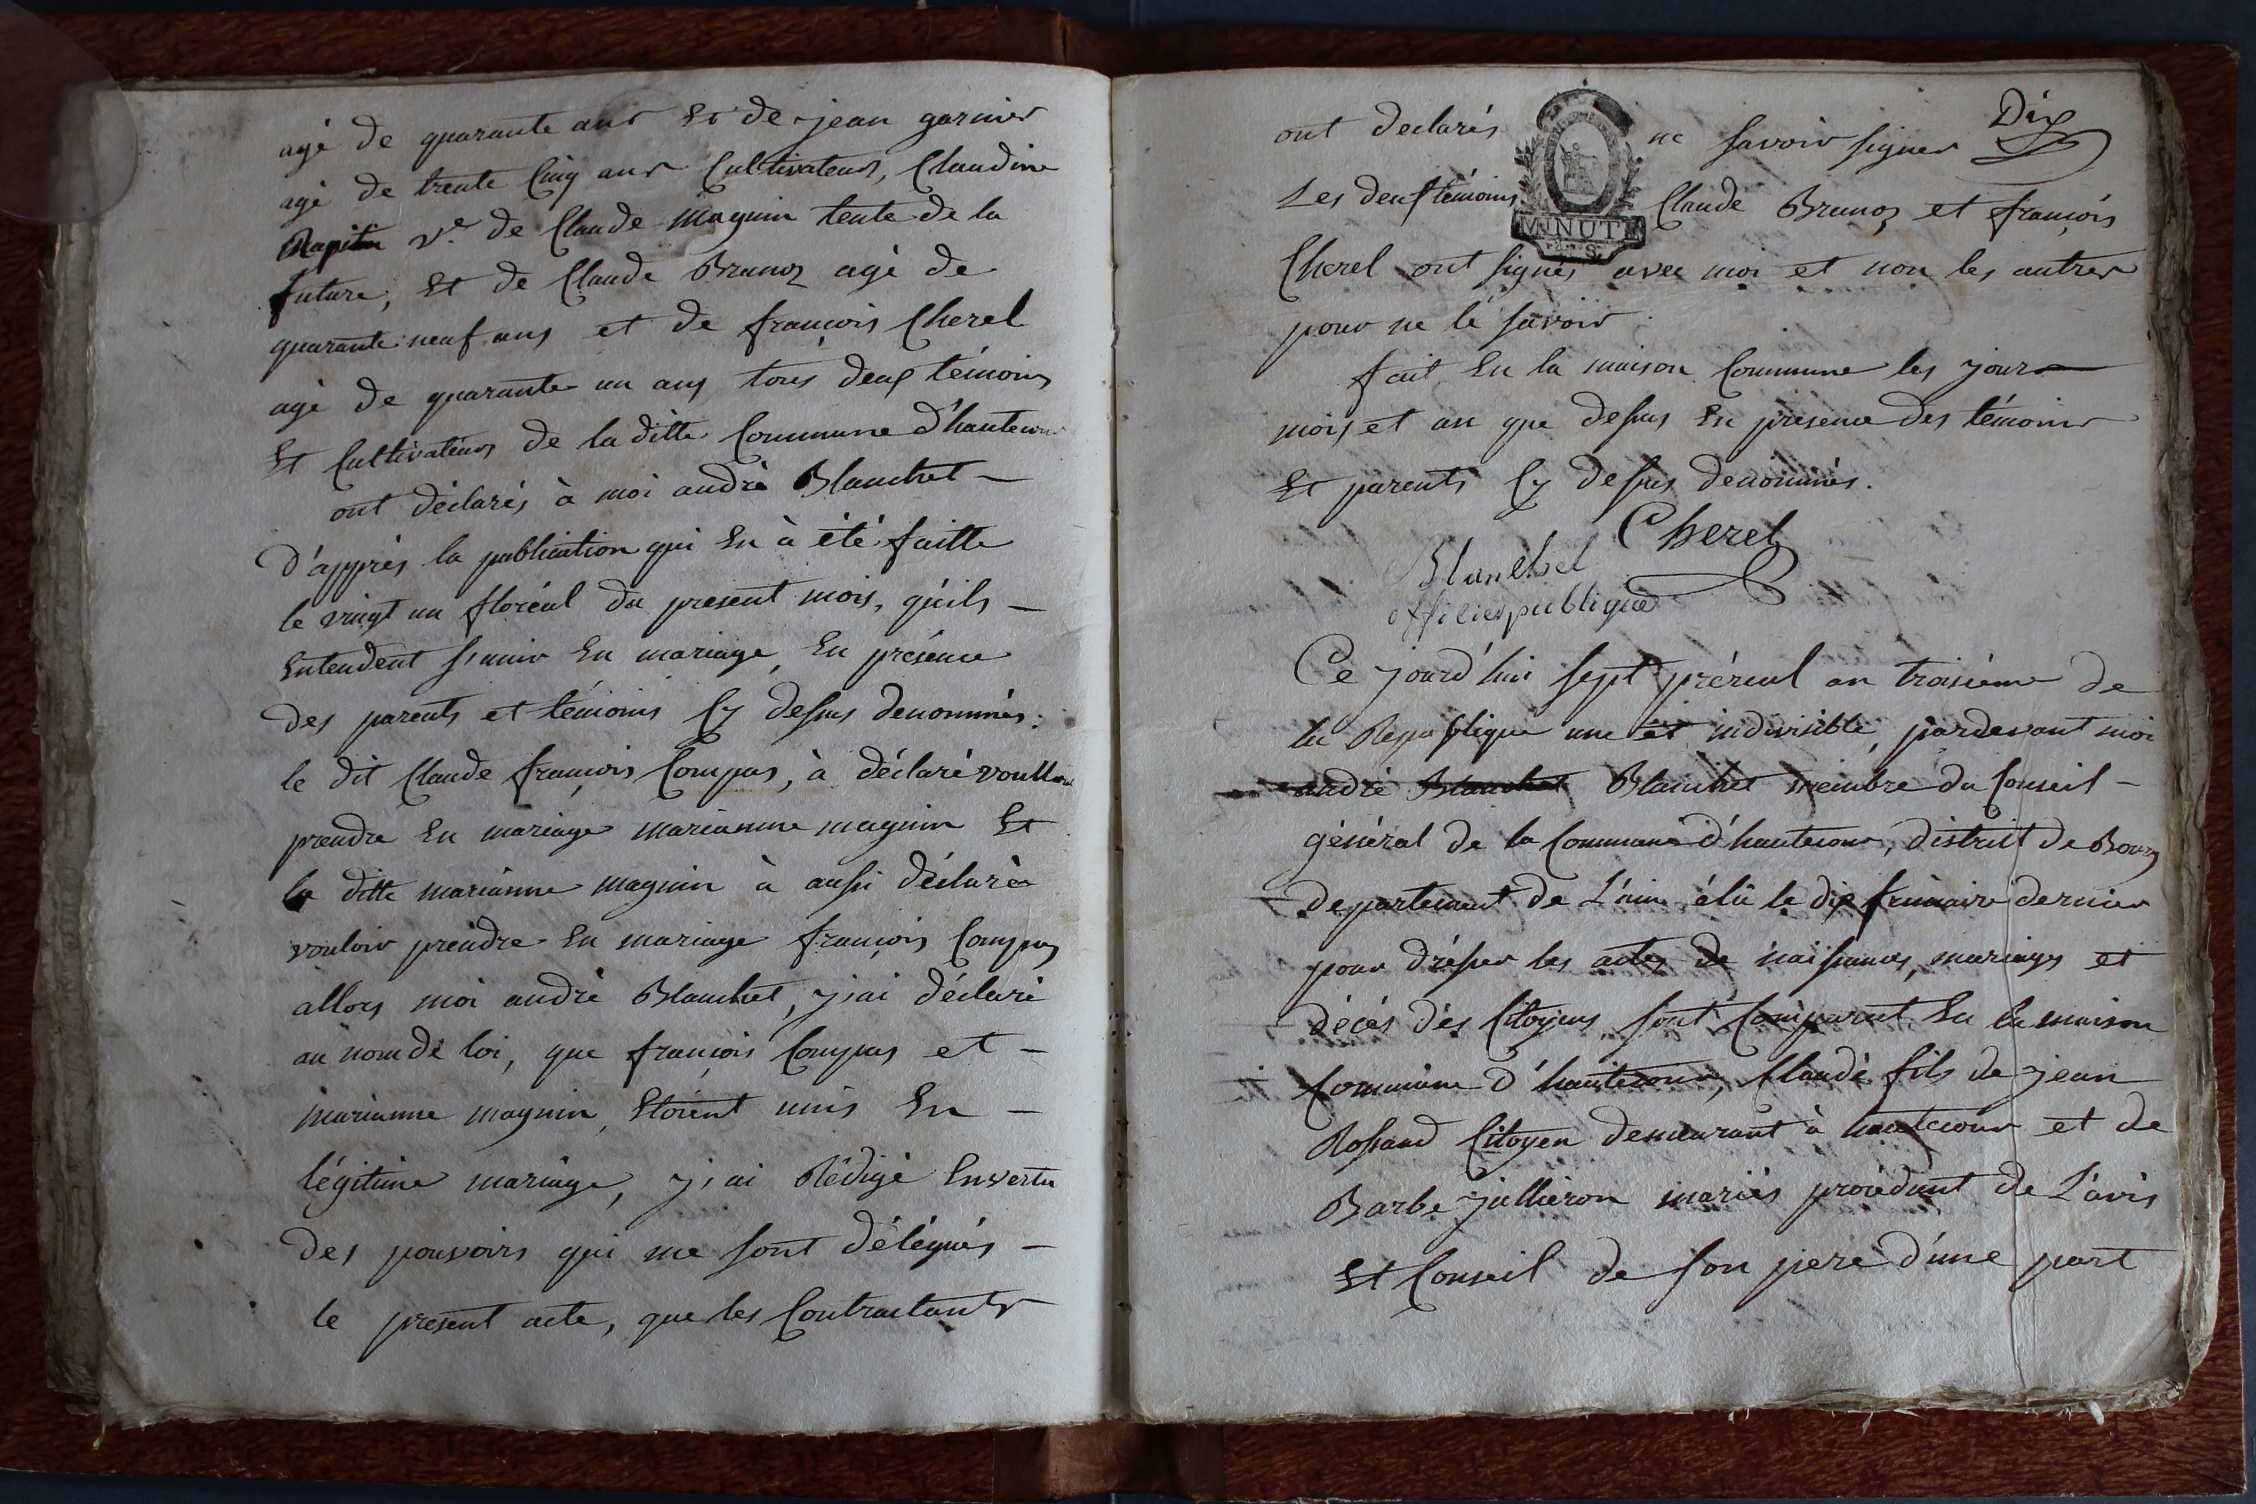 agé de quarante ans Et de jean garnier
agé de trente Cinq ans Cultivateur, Claudine
Rapin v.e de Claude Magnin tente de la
future, Et de Claude Brunoz agé de
quarante neuf ans et de françois Cherel
agé de quarante un ans tous deux témoins
Et Cultivateurs de la ditte Commune d'hautecour
ont déclarés à moi andré Blanchet —
d'apprès la publication qui En à été faitte
le vingt un floréal du present mois, qu'ils —
Entendent s'unir En mariage, En présence
des parents et témoins Cy dessus denommés:
le dit Claude françois Compas, à déclaré voulloir
prendre En mariage marianne magnin Et
la ditte marianne magnin à aussi déclaré
vouloir prendre En mariage françois Compas
allors moi andré Blanchet, j'ai déclaré
au nom de loi, que françois Compas et —
marianne magnin, Etoient unis En —
légitime mariage, j'ai Rédigé Envertu
des pouvoirs qui me sont délégués —
le present acte, que les Contractants
Dix
ont declarés ne savoir signer
Les deux témoins Claude Brunoz et françois
MINUTE
Cherel ont signés avec moi et non les autres
pour ne le savoir
fait En la maison Commune les jour
mois et an que dessus En presence des témoins
Et parents Cy dessus denommés.
Cherel
Blanchet
officier publique
Ce jourd'hui sept préreal an troisième de
la Republique une et indivisible, pardevant moi
andré Blanchet Blanchet membre du Conseil —
général de la Commune d'hautecour, district de Bourg
departement de L'ain élu le dix frimaire dernier
pour drésser les actes de naissances, mariages et
décés des Citoyens sont Comparut En la maison
Commune d'hautecour, Claude fils de jean
Rossand Citoyen demeurant à hautecour et de
Barbe jullieron mariés procédant de L'avis
Et Conseil de son pere d'une part